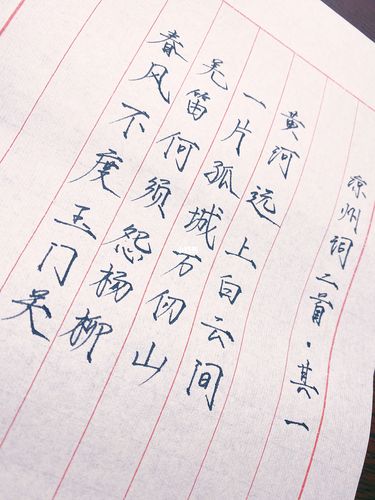 凉州词二首·其一
黄河远上白云间
一片孤城万仞山
羌笛何须怨杨柳
春风不度玉门关